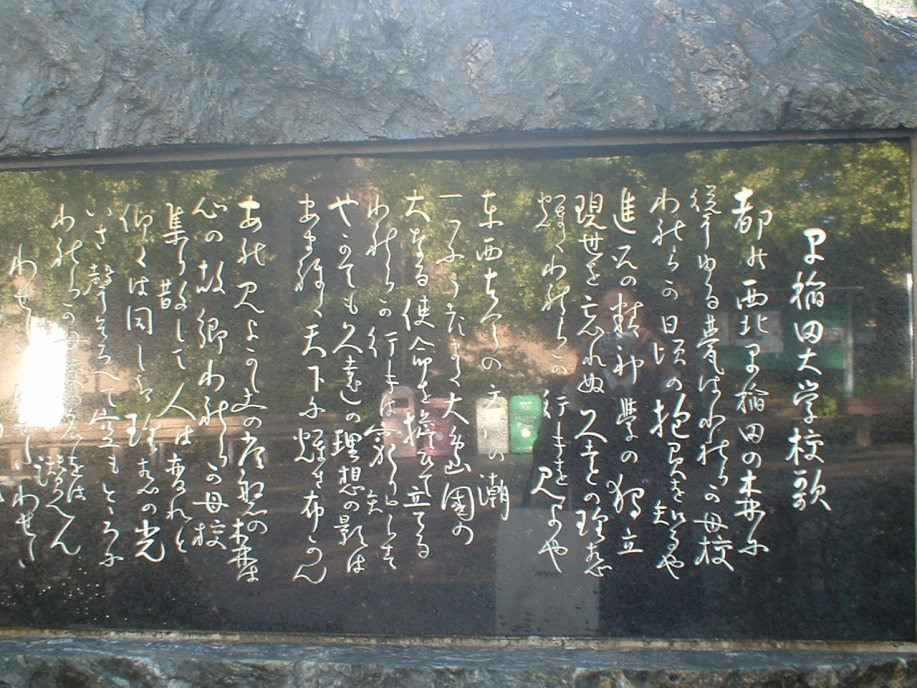 早稲田大学校歌
都の西北早稲田の森に
聳ゆる甍はわれらの母校
われらの日頃の抱負を知るや
進取の精神學の独立
現世を忘れぬ久遠の理想
輝くわれらの行手を見よや
東西古今の文化の潮
一つにうつまく大島國の
大なる使命を擔ひて立てる
われらの行手は窮り知らす
やかても久遠の理想の影は
あまねく天下に輝き布かん
あれ見よかしこの常磐の森は
心の故郷われらの母校
集り散して人は変れと
仰くは同しき理想の光
いさ聲そろへて空もとゝろに
われらの母校の名をは讃へん
わせ わせ